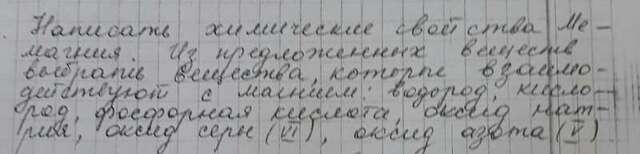 Написать химические свойства Ме-
магния. Из предложенных веществ
выбрать вещества, которые взаимо-
действуют с магнием: водород, кисло-
род, фосфорная кислота, оксид нат-
рия, оксид серы (VI), оксид азота (V)